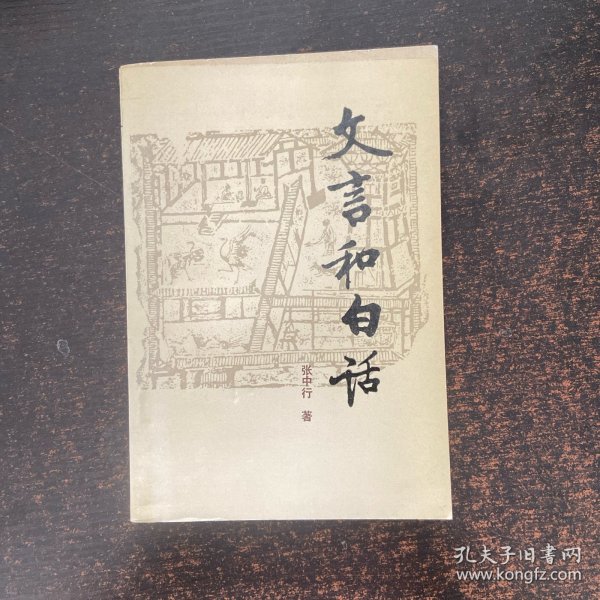 文言和白话
张中行 著
孔夫子旧书网
www.kongfz.com